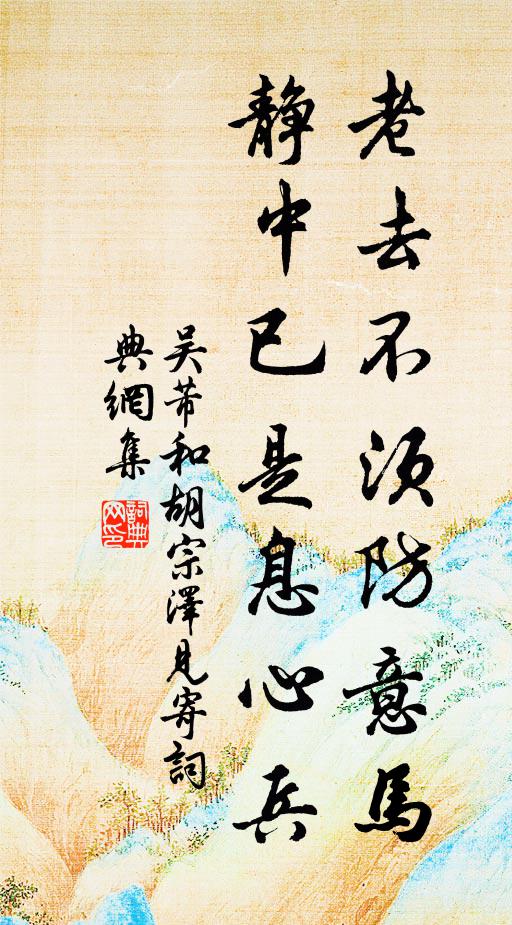 老去不須防意馬
靜中已是息心兵
吴芾和胡宗澤見寄詞
典網集
詞典网印